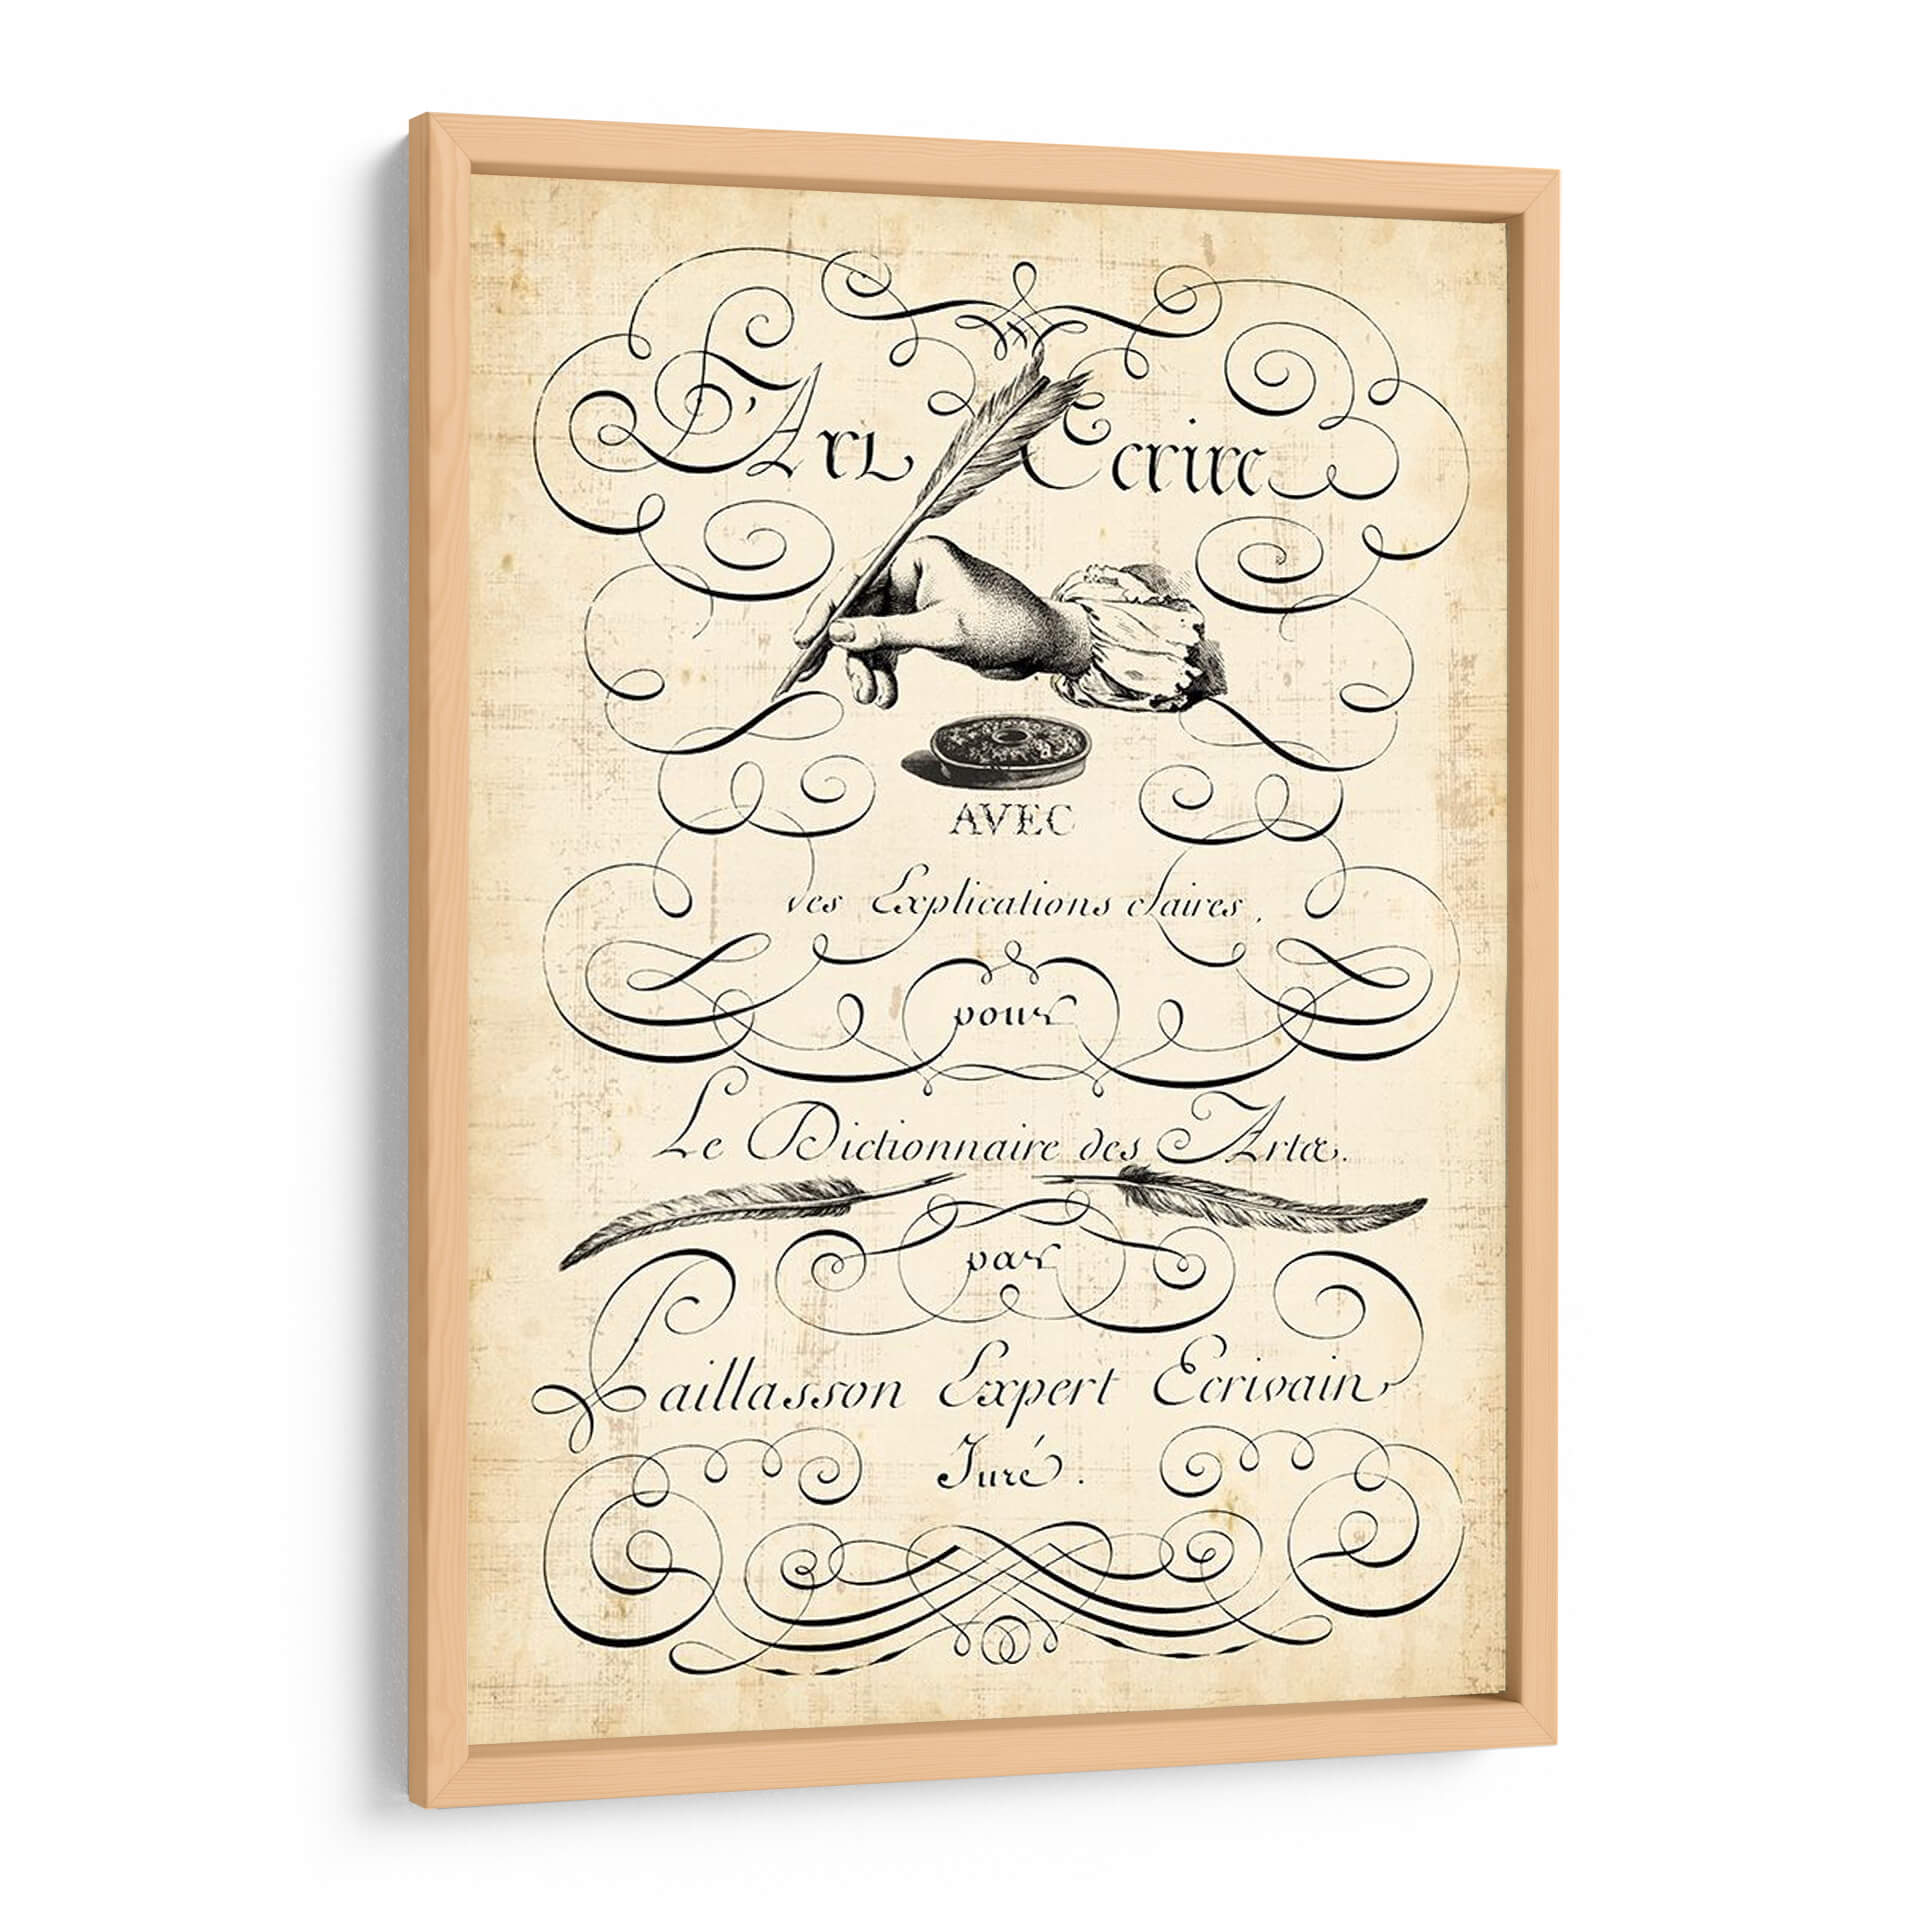 L'Art Ecrire
AVEC
des Explications claires,
pour
Le Dictionnaire des Arts.
par
Paillasson Expert Ecrivain
Juré.